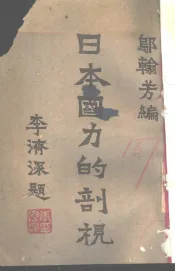 鄔翰芳編
日本國力的剖視
李濟深題